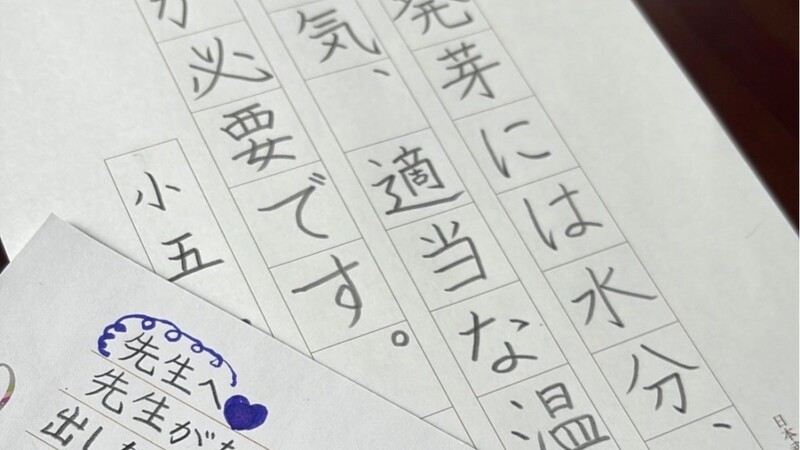 発芽には水分、
気、適当な温
が必要です。
小五
先生へ
先生が
出し
日本